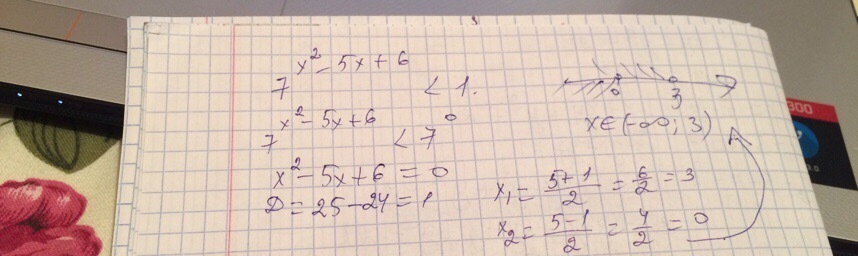 7^(x² - 5x + 6) < 1.
7^(x² - 5x + 6) < 7⁰
x² - 5x + 6 = 0
D = 25 - 24 = 1
0 3
x∈(-∞; 3)
x₁ = (5+1)/2 = 6/2 = 3
x₂ = (5-1)/2 = 4/2 = 0
300